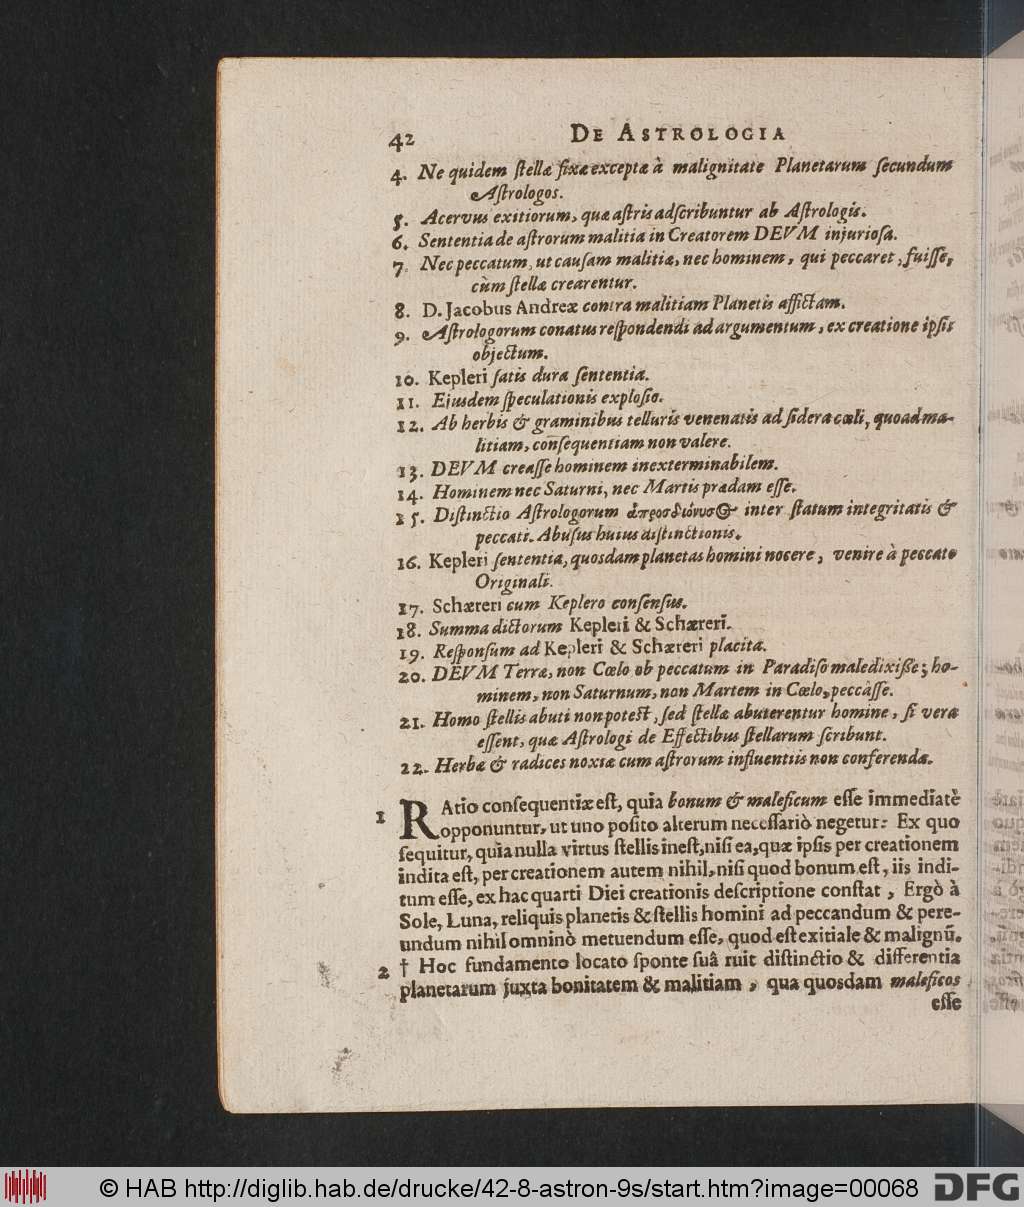 42 DE ASTROLOGIA
4. Ne quidem ſtellæ fixæ exceptæ à malignitate Planetarum ſecundum
Aſtrologos.
5. Acervus exitiorum, quæ aſtris adſcribuntur ab Aſtrologis.
6. Sententia de aſtrorum malitia in Creatorem DEVM injurioſa.
7. Nec peccatum, ut cauſam malitiæ, nec hominem, qui peccaret, fuiſſe,
cùm ſtellæ crearentur.
8. D. Jacobus Andreæ contra malitiam Planetis affictam.
9. Aſtrologorum conatus reſpondendi ad argumentum, ex creatione ipſis
objectum.
10. Kepleri ſatis dura ſententia.
11. Ejusdem ſpeculationis exploſio.
12. Ab herbis & graminibus telluris venenatis ad ſidera cœli, quoad ma-
litiam, conſequentiam non valere.
13. DEVM creaſſe hominem inexterminabilem.
14. Hominem nec Saturni, nec Martis prædam eſſe.
15. Diſtinctio Aſtrologorum ἀπροσδιόνυσος inter ſtatum integritatis &
peccati. Abuſus huius diſtinctionis.
16. Kepleri ſententia, quosdam planetas homini nocere, venire à peccato
Originali.
17. Schæreri cum Keplero conſenſus.
18. Summa dictorum Kepleri & Schæreri.
19. Reſponſum ad Kepleri & Schæreri placita.
20. DEVM Terræ, non Cœlo ob peccatum in Paradiſo maledixiſſe; ho-
minem, non Saturnum, non Martem in Cœlo, peccâſſe.
21. Homo ſtellis abuti non poteſt, ſed ſtellæ abuterentur homine, ſi vera
eſſent, quæ Aſtrologi de Effectibus ſtellarum ſcribunt.
22. Herbæ & radices noxiæ cum aſtrorum influentiis non conferendæ.
1 RAtio conſequentiæ eſt, quia bonum & maleficum eſſe immediatè
opponuntur, ut uno poſito alterum neceſſariò negetur: Ex quo
ſequitur, quia nulla virtus ſtellis ineſt, niſi ea, quæ ipſis per creationem
indita eſt, per creationem autem nihil, niſi quod bonum eſt, iis indi-
tum eſſe, ex hac quarti Diei creationis deſcriptione conſtat, Ergò à
Sole, Luna, reliquis planetis & ſtellis homini ad peccandum & pere-
undum nihil omninò metuendum eſſe, quod eſt exitiale & malignũ.
2 † Hoc fundamento locato ſponte ſuâ ruit diſtinctio & differentia
planetarum juxta bonitatem & malitiam, qua quosdam maleficos
eſſe
© HAB http://diglib.hab.de/drucke/42-8-astron-9s/start.htm?image=00068 DFG